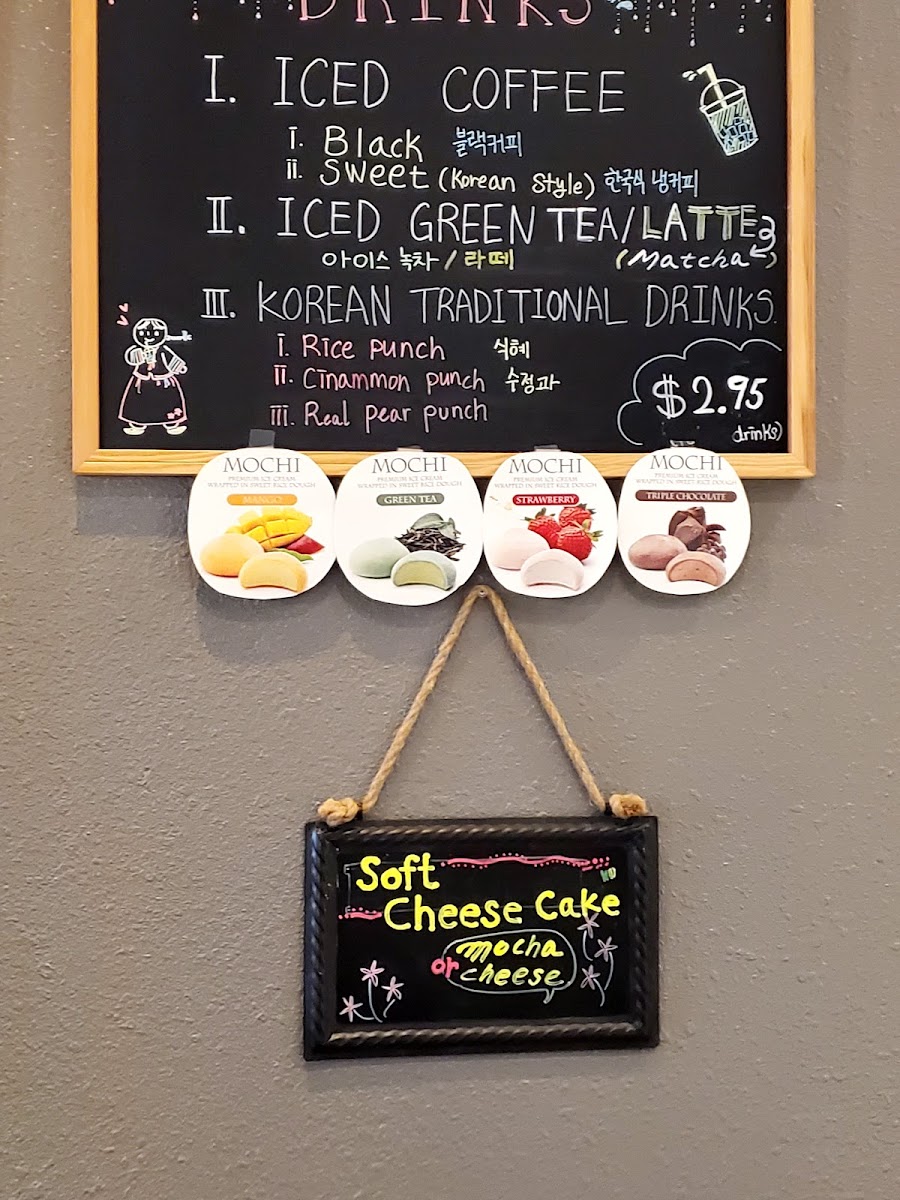 DRINKS
I. ICED COFFEE
i. Black 블랙커피
ii. Sweet (Korean Style) 한국식 냉커피
II. ICED GREEN TEA/LATTE
아이스 녹차 / 라떼 (Matcha)
III. KOREAN TRADITIONAL DRINKS.
i. Rice punch 식혜
ii. Cinammon punch 수정과
iii. Real pear punch
$2.95
drinks)
MOCHI
PREMIUM ICE CREAM
WRAPPED IN SWEET RICE DOUGH
MANGO
MOCHI
PREMIUM ICE CREAM
WRAPPED IN SWEET RICE DOUGH
GREEN TEA
MOCHI
PREMIUM ICE CREAM
WRAPPED IN SWEET RICE DOUGH
STRAWBERRY
MOCHI
PREMIUM ICE CREAM
WRAPPED IN SWEET RICE DOUGH
TRIPLE CHOCOLATE
Soft
Cheese Cake
mocha
or cheese